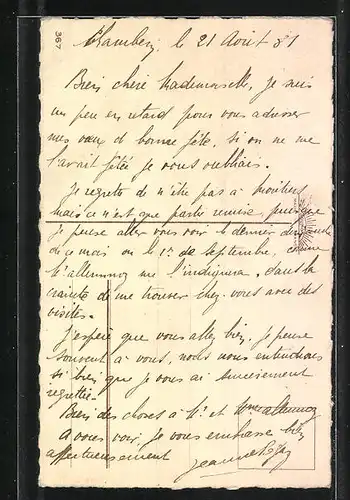 367
Chambéry, le 21 Août 31
Bien chère Mademoiselle, je suis
un peu en retard pour vous adresser
mes vœux de bonne fête, si on ne me
l'avait fêtée je vous oubliais.
Je regrette de n'être pas à Moutiers
mais ce n'est que partie remise, puisque
je pense aller vous voir le dernier dimanche
de ce mois ou le 1er de Septembre, comme
Mr me l'indiquera. Dans la
crainte de me trouver chez vous avec des
visites.
J'espère que vous allez bien. Je pense
souvent à vous, nous nous entendions
si bien que je vous ai sincèrement
regrettée.
Bien des choses à Mr et Mme
A vous voir, je vous embrasse bien
affectueusement